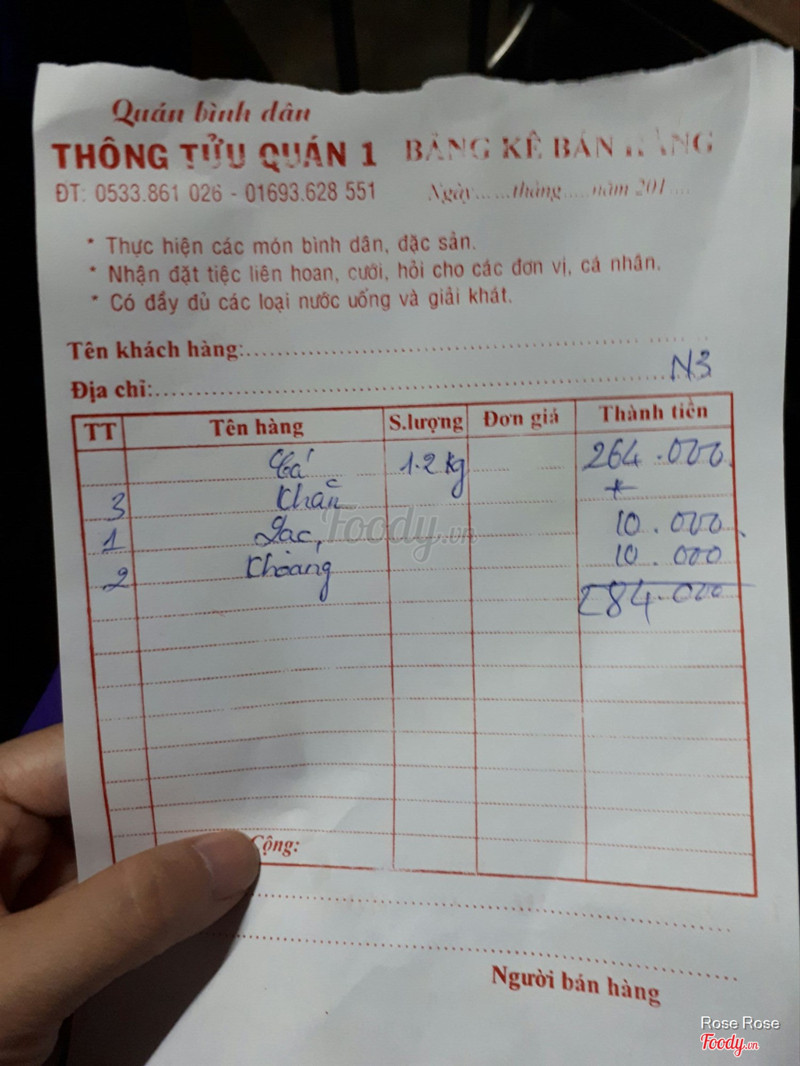 Quán bình dân
THÔNG TỬU QUÁN 1 BẢNG KÊ BÁN HÀNG
ĐT: 0533.861 026 - 01693.628 551 Ngày......tháng.....năm 201....
* Thực hiện các món bình dân, đặc sản.
* Nhận đặt tiệc liên hoan, cưới, hỏi cho các đơn vị, cá nhân.
* Có đầy đủ các loại nước uống và giải khát.
Tên khách hàng:
Địa chỉ: N3
TT Tên hàng S.lượng Đơn giá Thành tiền
Cá 1.2 kg 264.000
3 Khăn +
1 Lạc 10.000
2 Khoáng 10.000
284.000
Foody.vn
Cộng:
Người bán hàng
Rose Rose
Foody.vn